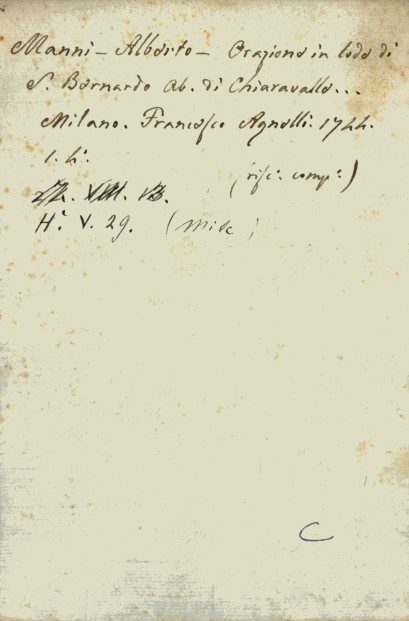 Manni – Alberto – Orazione in lode di
S. Bernardo Ab. di Chiaravalle...
Milano. Francesco Agnelli. 1744.
(risc.ª comp.ª)
VIII. VB.
H.ª V. 29. (Misc)
C